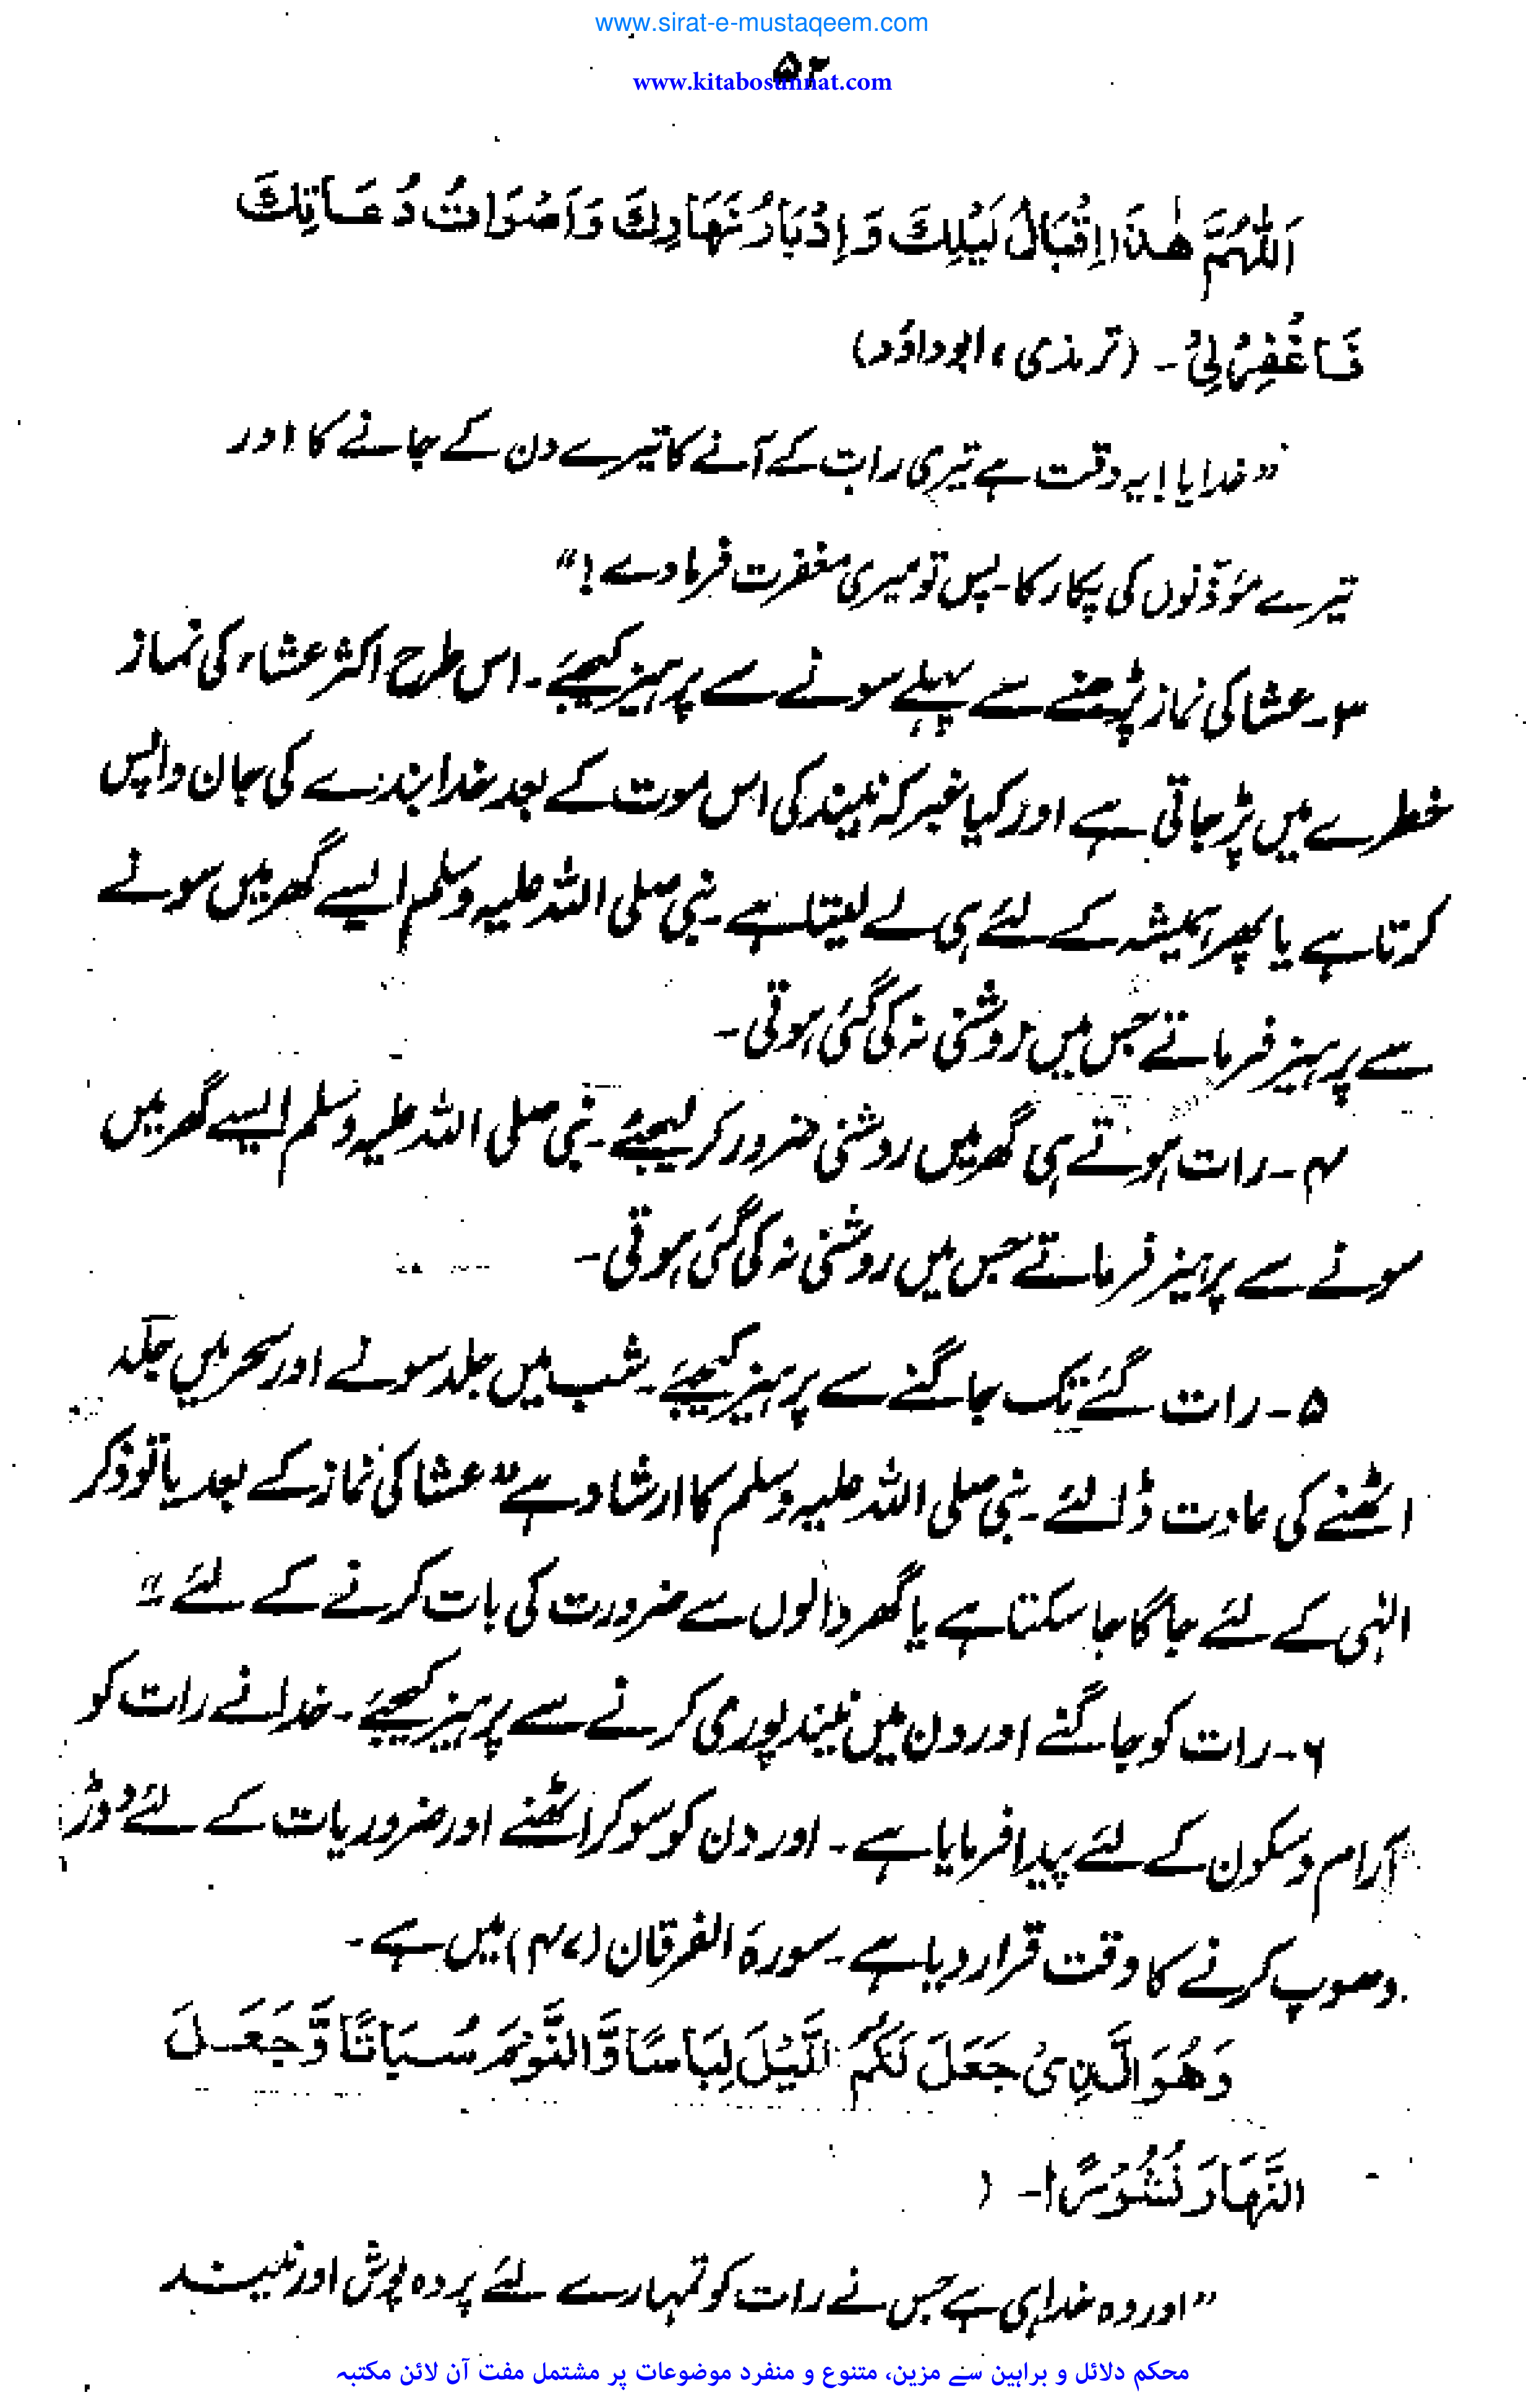 www.sirat-e-mustaqeem.com
۵۲
www.kitabosunnat.com
اَللّٰهُمَّ هٰذَا اِقْبَالُ لَيْلِكَ وَ اِدْبَارُ نَهَارِكَ وَاَصْوَاتُ دُعَاتِكَ
فَاغْفِرْ لِيْ۔ (ترمذی، ابوداؤد)
”خدایا! یہ وقت ہے تیری رات کے آنے کا تیرے دن کے جانے کا اور
تیرے مؤذّنوں کی پکار کا۔ پس تو میری مغفرت فرمادے!“
۳۔ عشا کی نماز پڑھنے سے پہلے سونے سے پرہیز کیجئے۔ اس طرح اکثر عشاء کی نماز
خطرے میں پڑ جاتی ہے اور کیا خبر کہ نیند کی اس موت کے بعد خدا بندے کی جان واپس
کرتا ہے یا پھر ہمیشہ کے لئے ہی لے لیتا ہے۔ نبی صلی اللہ علیہ وسلم ایسے گھر میں سونے
سے پرہیز فرماتے جس میں روشنی نہ کی گئی ہوتی۔
۴۔ رات ہوتے ہی گھر میں روشنی ضرور کر لیجئے۔ نبی صلی اللہ علیہ وسلم ایسے گھر میں
سونے سے پرہیز فرماتے جس میں روشنی نہ کی گئی ہوتی۔
۵۔ رات گئے تک جاگنے سے پرہیز کیجئے۔ شب میں جلد سونے اور سحر میں جلد
اٹھنے کی عادت ڈالئے۔ نبی صلی اللہ علیہ وسلم کا ارشاد ہے ”عشا کی نماز کے بعد یا تو ذکر
الٰہی کے لئے جاگا جا سکتا ہے یا گھر والوں سے ضرورت کی بات کرنے کے لئے۔“
۶۔ رات کو جاگنے اور دن میں نیند پوری کرنے سے پرہیز کیجئے۔ خدا نے رات کو
آرام و سکون کے لئے پیدا فرمایا ہے۔ اور دن کو سو کر اٹھنے اور ضروریات کے لئے دوڑ
دھوپ کرنے کا وقت قرار دیا ہے۔ سورۂ الفرقان (۴۷) میں ہے۔
وَهُوَ الَّذِیْ جَعَلَ لَکُمُ الَّیْلَ لِبَاسًا وَّالنَّوْمَ سُبَاتًا وَّجَعَلَ
النَّهَارَ نُشُوْرًا۔ (
”اور وہ خدا ہی ہے جس نے رات کو تمہارے لئے پردہ پوش اور نیند
محکم دلائل و براہین سے مزین، متنوع و منفرد موضوعات پر مشتمل مفت آن لائن مکتبہ